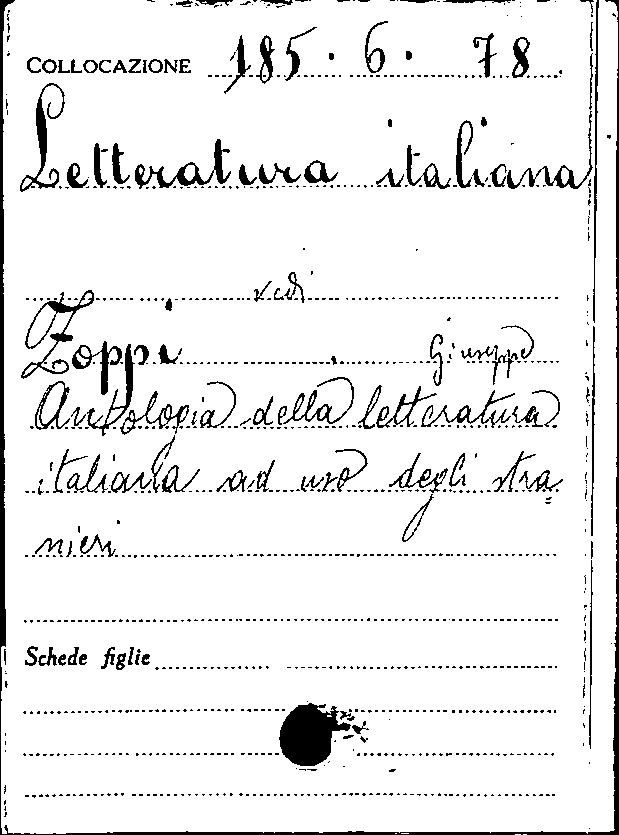 COLLOCAZIONE 185 . 6 . 78
Letteratura italiana
vedi
Zoppi . Giuseppe
Antologia della letteratura
italiana ad uso degli stra=
nieri
Schede figlie